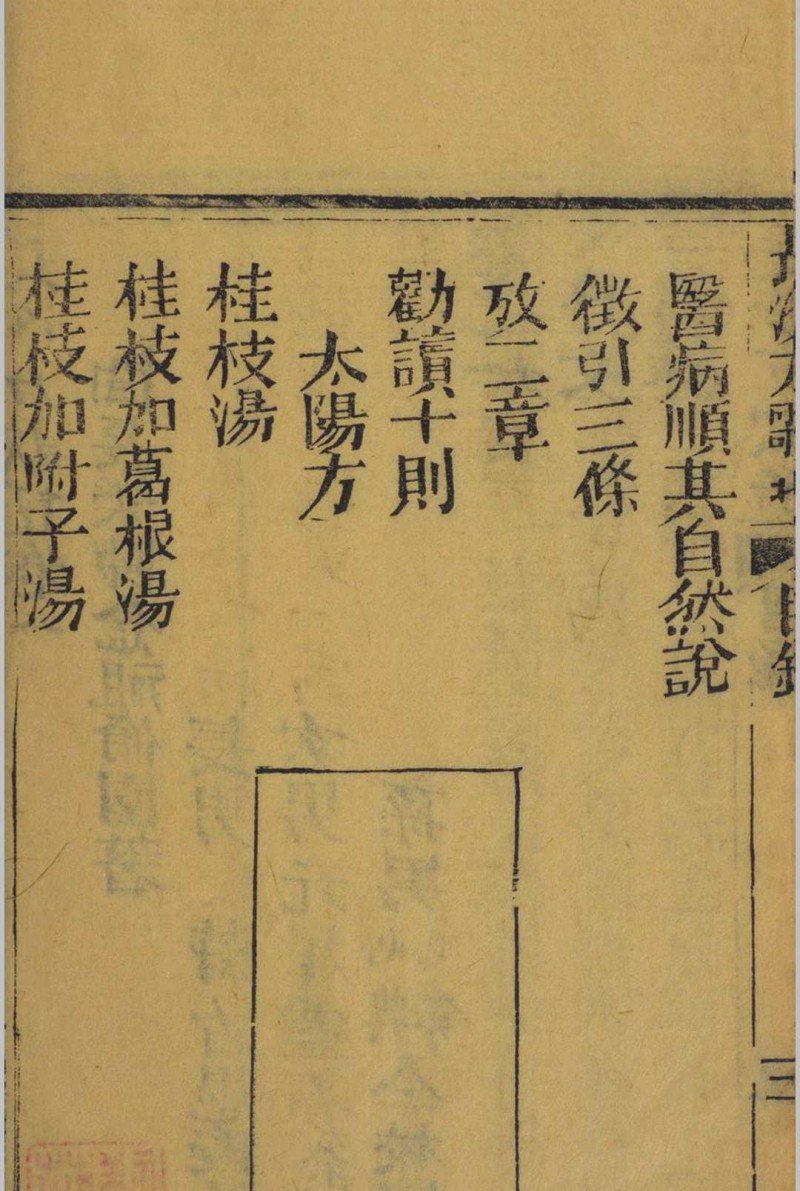 醫病順其自然說
徵引三條
攷二章
勸讀十則
太陽方
桂枝湯
桂枝加葛根湯
桂枝加附子湯
三